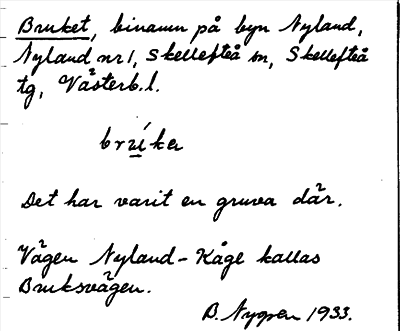 Bruket, binamn på byn Nyland,
Nyland nr 1, Skellefteå sn, Skellefteå
tg, Västerb.l.
bruíka
Det har varit en gruva där.
Vägen Nyland-Kåge kallas
Bruksvägen.
B. Nygren 1933.